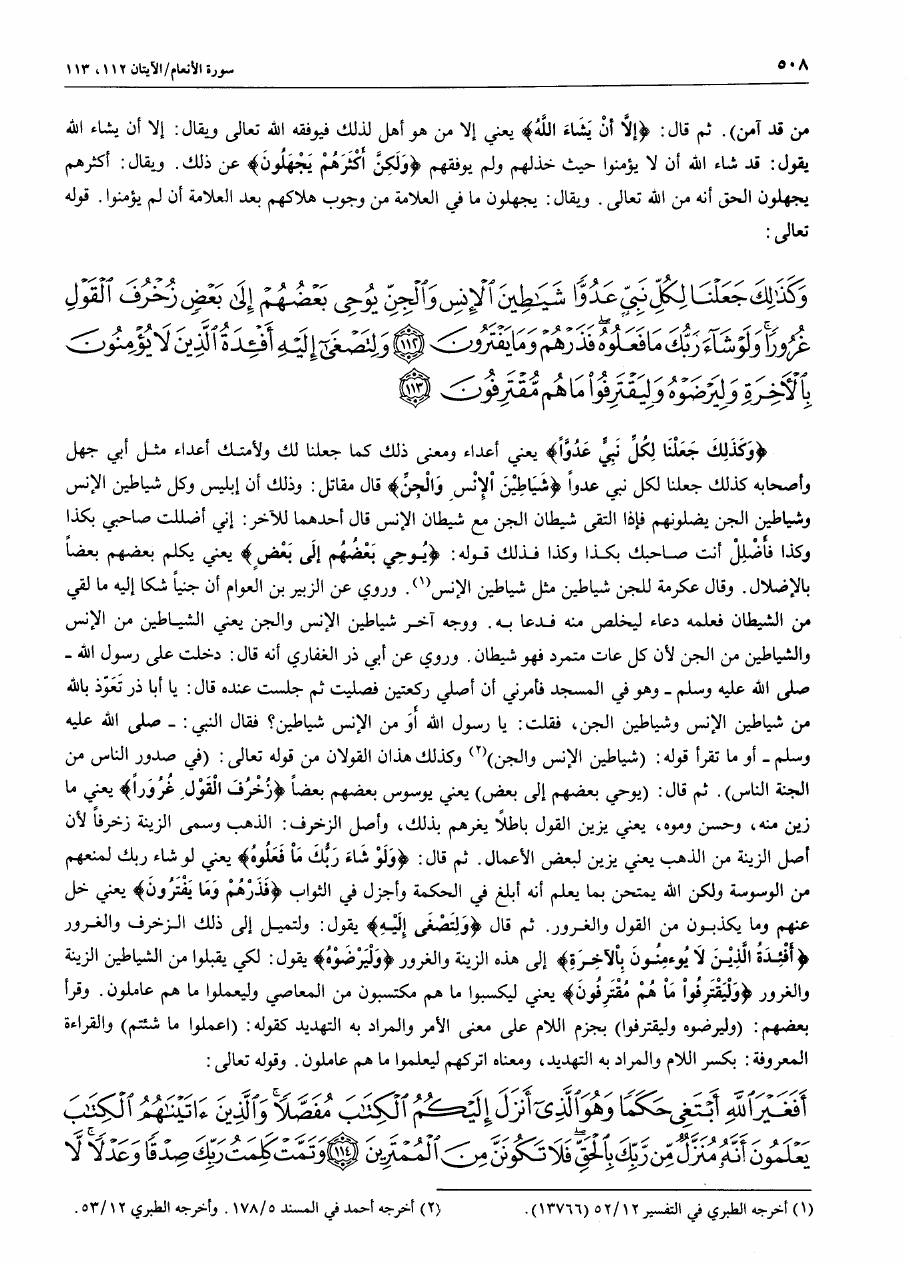 ٥٠٨
سورة الأنعام/الآيتان ١١٢، ١١٣
من قد آمن). ثم قال: ﴿إِلَّا أَنْ يَشَاءَ اللَّهُ﴾ يعني إلا من هو أهل لذلك فيوفقه الله تعالى ويقال: إلا أن يشاء الله
يقول: قد شاء الله أن لا يؤمنوا حيث خذلهم ولم يوفقهم ﴿وَلَكِنَّ أَكْثَرَهُمْ يَجْهَلُونَ﴾ عن ذلك. ويقال: أكثرهم
يجهلون الحق أنه من الله تعالى. ويقال: يجهلون ما في العلامة من وجوب هلاكهم بعد العلامة أن لم يؤمنوا. قوله
تعالى:
وَكَذَٰلِكَ جَعَلْنَا لِكُلِّ نَبِيٍّ عَدُوًّا شَيَٰطِينَ ٱلْإِنسِ وَٱلْجِنِّ يُوحِى بَعْضُهُمْ إِلَىٰ بَعْضٍ زُخْرُفَ ٱلْقَوْلِ
غُرُورًا ۚ وَلَوْ شَآءَ رَبُّكَ مَا فَعَلُوهُ ۖ فَذَرْهُمْ وَمَا يَفْتَرُونَ ﴿١١٢﴾ وَلِتَصْغَىٰٓ إِلَيْهِ أَفْـِٔدَةُ ٱلَّذِينَ لَا يُؤْمِنُونَ
بِٱلْأٓخِرَةِ وَلِيَرْضَوْهُ وَلِيَقْتَرِفُوا۟ مَا هُم مُّقْتَرِفُونَ ﴿١١٣﴾
﴿وَكَذَلِكَ جَعَلْنَا لِكُلِّ نَبِيٍّ عَدُوَّاً﴾ يعني أعداء ومعنى ذلك كما جعلنا لك ولأمتك أعداء مثل أبي جهل
وأصحابه كذلك جعلنا لكل نبي عدواً ﴿شَيَاطِيْنَ ٱلإِنْسِ وَالْجِنِّ﴾ قال مقاتل: وذلك أن إبليس وكل شياطين الإنس
وشياطين الجن يضلونهم فإذا التقى شيطان الجن مع شيطان الإنس قال أحدهما للآخر: إني أضللت صاحبي بكذا
وكذا فَأَضْلِلْ أنت صاحبك بكذا وكذا فذلك قوله: ﴿يُوحِي بَعْضُهُم إِلَى بَعْضٍ﴾ يعني يكلم بعضهم بعضاً
بالإضلال. وقال عكرمة للجن شياطين مثل شياطين الإنس(١). وروي عن الزبير بن العوام أن جنياً شكا إليه ما لقي
من الشيطان فعلمه دعاء ليخلص منه فدعا به. ووجه آخر شياطين الإنس والجن يعني الشياطين من الإنس
والشياطين من الجن لأن كل عات متمرد فهو شيطان. وروي عن أبي ذر الغفاري أنه قال: دخلت على رسول الله -
صلى الله عليه وسلم - وهو في المسجد فأمرني أن أصلي ركعتين فصليت ثم جلست عنده قال: يا أبا ذر تَعَوَّذ بالله
من شياطين الإنس وشياطين الجن، فقلت: يا رسول الله أَوَ من الإنس شياطين؟ فقال النبي: - صلى الله عليه
وسلم - أو ما تقرأ قوله: (شياطين الإنس والجن)(٢) وكذلك هذان القولان من قوله تعالى: (في صدور الناس من
الجنة الناس). ثم قال: (يوحي بعضهم إلى بعض) يعني يوسوس بعضهم بعضاً ﴿زُخْرُفَ الْقَوْلِ غُرُوَراً﴾ يعني ما
زين منه، وحسن وموه، يعني يزين القول باطلاً يغرهم بذلك، وأصل الزخرف: الذهب وسمى الزينة زخرفاً لأن
أصل الزينة من الذهب يعني يزين لبعض الأعمال. ثم قال: ﴿وَلَوْ شَاءَ رَبُّكَ مَاْ فَعَلُوهُ﴾ يعني لو شاء ربك لمنعهم
من الوسوسة ولكن الله يمتحن بما يعلم أنه أبلغ في الحكمة وأجزل في الثواب ﴿فَذَرْهُمْ وَمَا يَفْتَرُونَ﴾ يعني خل
عنهم وما يكذبون من القول والغرور. ثم قال ﴿وَلِتَصْغَى إِلَيْهِ﴾ يقول: ولتميل إلى ذلك الزخرف والغرور
﴿أَفْئِدَةُ الَّذِيْنَ لَا يُوءمِنُونَ بِاْلآخِرَةِ﴾ إلى هذه الزينة والغرور ﴿وَلِيَرْضَوْهُ﴾ يقول: لكي يقبلوا من الشياطين الزينة
والغرور ﴿وَلْيَقْتَرِفُواْ مَاْ هُمْ مُقْتَرِفُونَ﴾ يعني ليكسبوا ما هم مكتسبون من المعاصي وليعملوا ما هم عاملون. وقرأ
بعضهم: (وليرضوه وليقترفوا) بجزم اللام على معنى الأمر والمراد به التهديد كقوله: (اعملوا ما شئتم) والقراءة
المعروفة: بكسر اللام والمراد به التهديد، ومعناه اتركهم ليعلموا ما هم عاملون. وقوله تعالى:
أَفَغَيْرَ ٱللَّهِ أَبْتَغِى حَكَمًا وَهُوَ ٱلَّذِىٓ أَنزَلَ إِلَيْكُمُ ٱلْكِتَٰبَ مُفَصَّلًا ۚ وَٱلَّذِينَ ءَاتَيْنَٰهُمُ ٱلْكِتَٰبَ
يَعْلَمُونَ أَنَّهُۥ مُنَزَّلٌ مِّن رَّبِّكَ بِٱلْحَقِّ ۖ فَلَا تَكُونَنَّ مِنَ ٱلْمُمْتَرِينَ ﴿١١٤﴾ وَتَمَّتْ كَلِمَتُ رَبِّكَ صِدْقًا وَعَدْلًا ۚ لَّا
(١) أخرجه الطبري في التفسير ٥٢/١٢ (١٣٧٦٦).
(٢) أخرجه أحمد في المسند ١٧٨/٥. وأخرجه الطبري ٥٣/١٢.